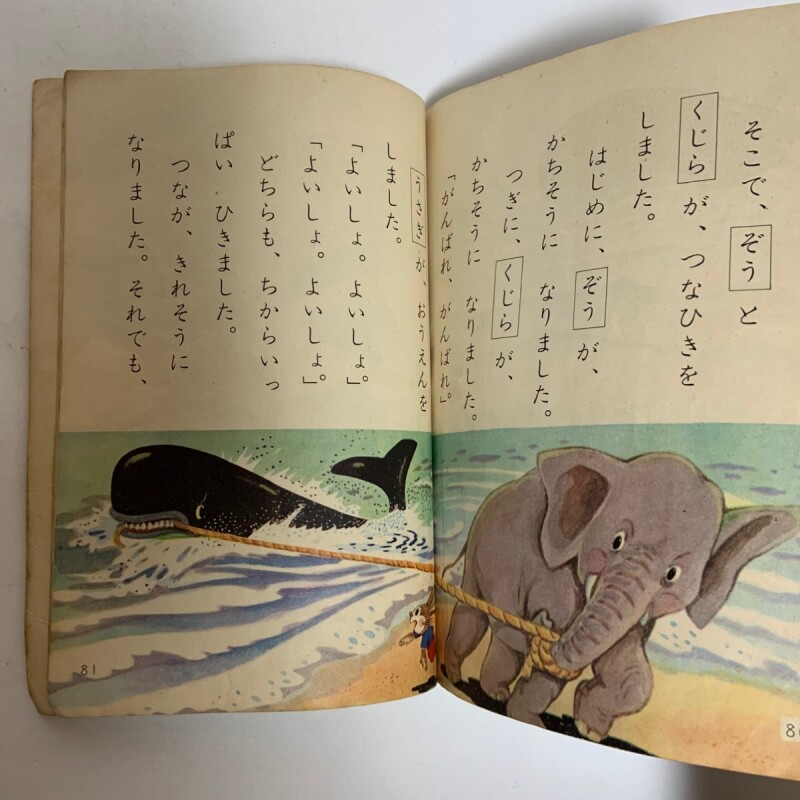 そこで、ぞうと
くじらが、つなひきを
しました。
はじめに、ぞうが、
かちそうに なりました。
つぎに、くじらが、
かちそうに なりました。
「がんばれ、がんばれ。」
うさぎが、おうえんを
しました。
「よいしょ。よいしょ。」
「よいしょ。よいしょ。」
どちらも、ちからいっ
ぱい、ひきました。
つなが、きれそうに
なりました。それでも、
81